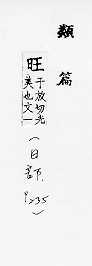 類篇
旺
于放切光
美也文一
(日部.